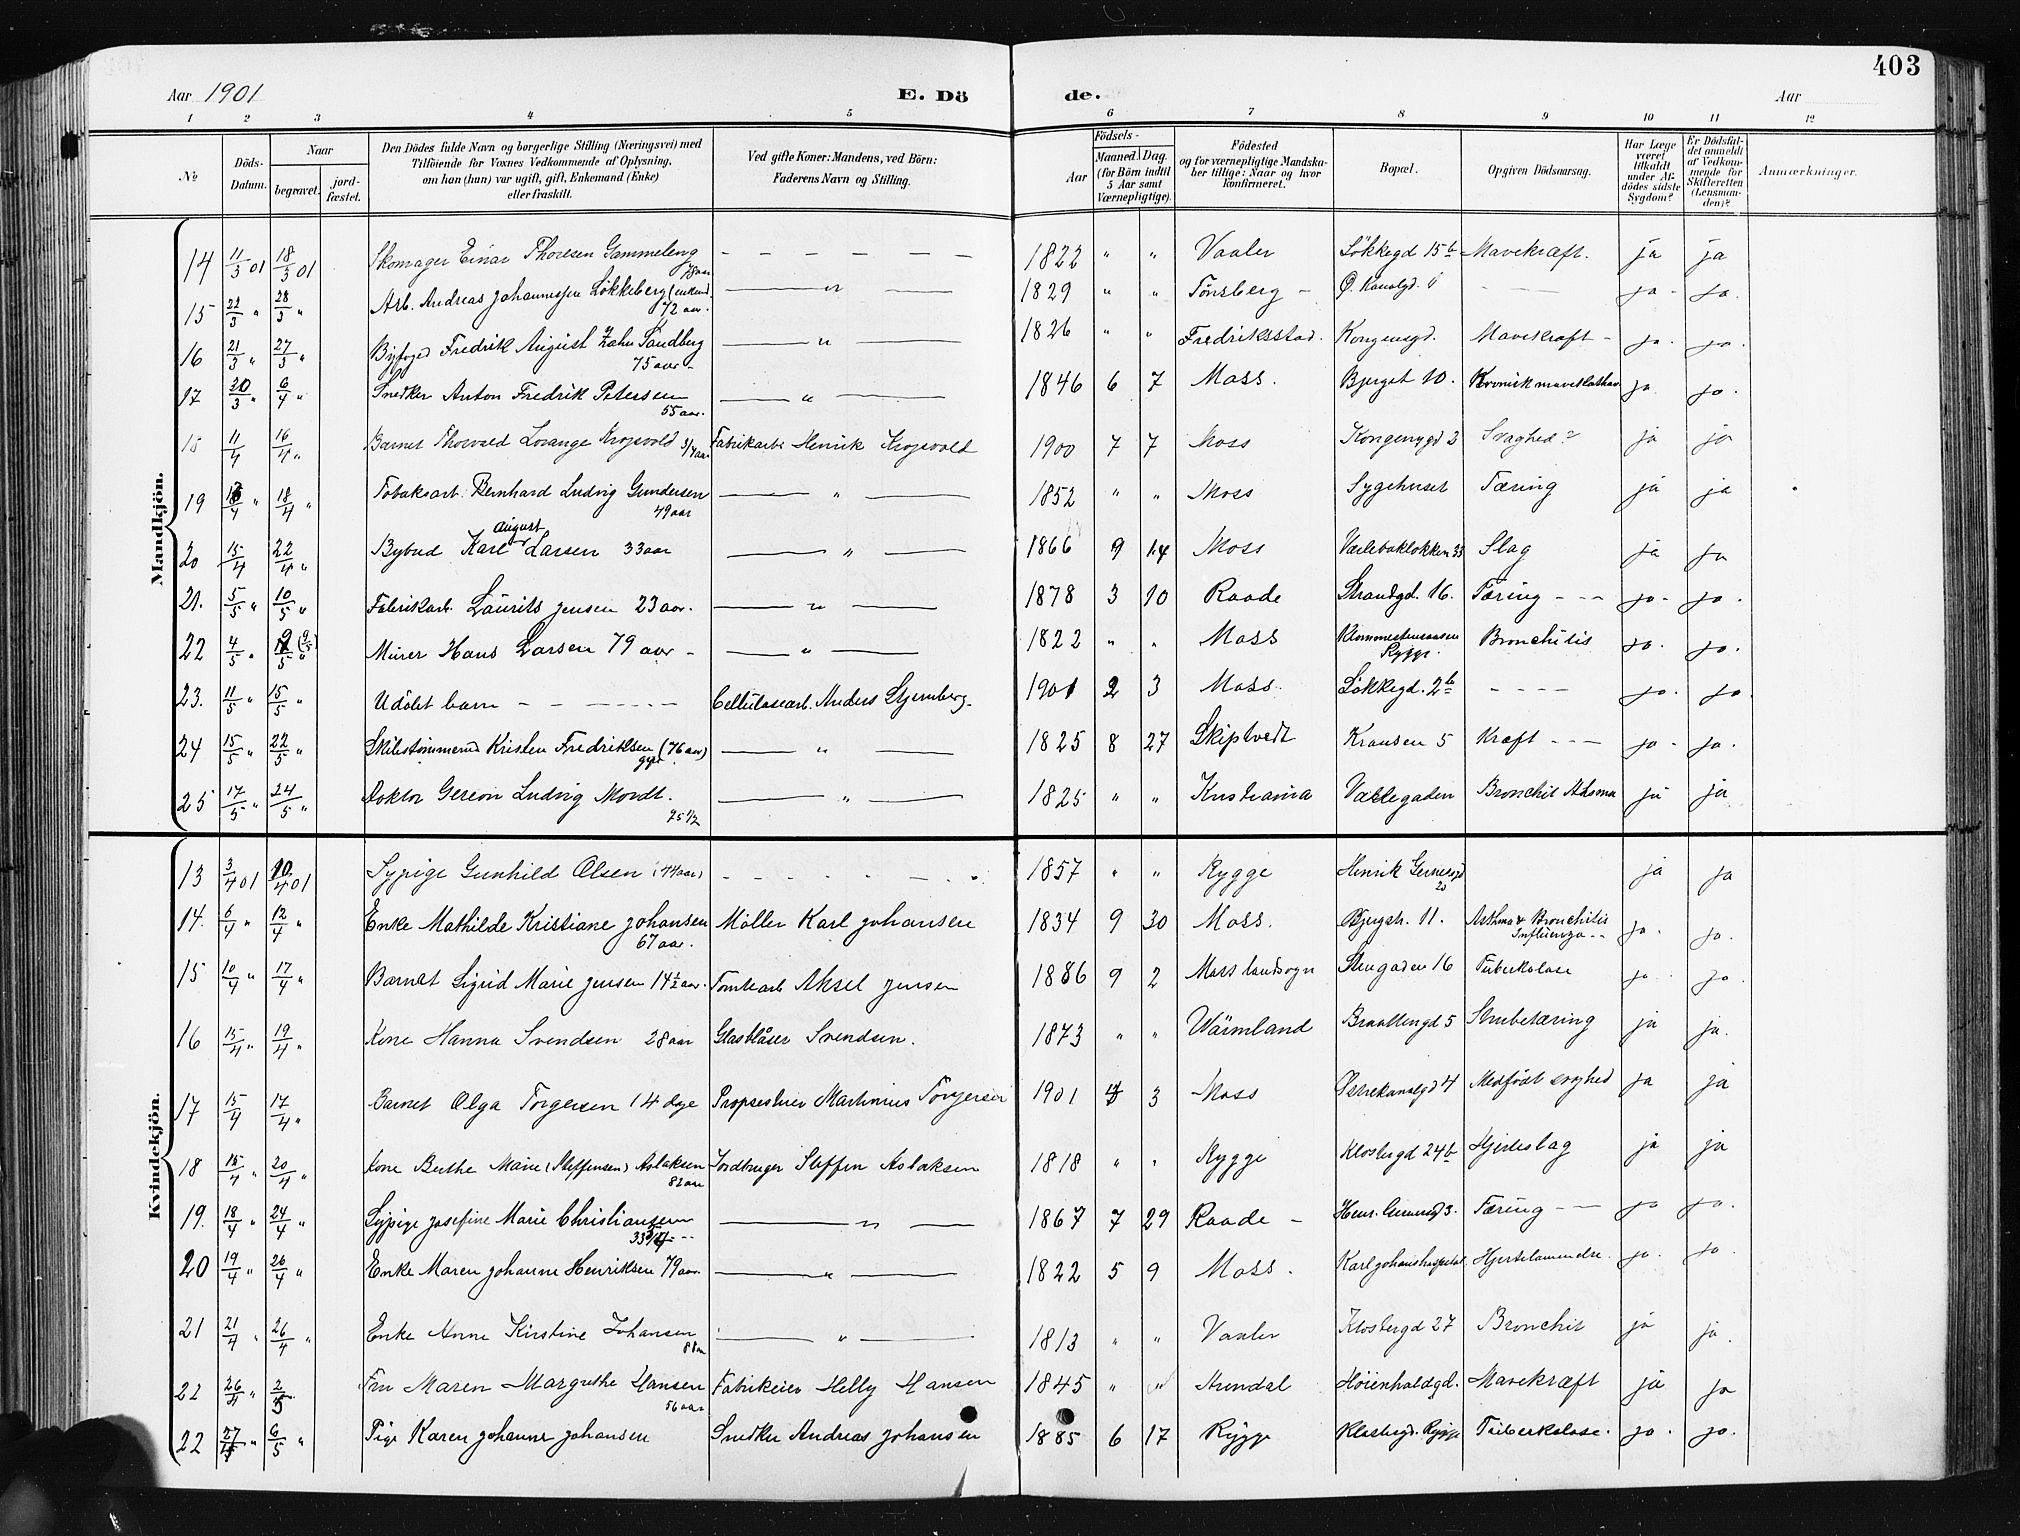 403
Aar 1901 E. Dö de. Aar
1 2 3 4 5 6 7 8 9 10 11 12
No
Döds-Datum.
Naar
begravet.
jord-fæstet.
Den Dödes fulde Navn og borgerlige Stilling (Næringsvei) med
Tilföiende for Voxnes Vedkommende af Oplysning,
om han (hun) var ugift, gift, Enkemand (Enke)
eller fraskilt.
Ved gifte Koner: Mandens, ved Börn:
Faderens Navn og Stilling.
Födsels-
Aar
Maaned. Dag.
(for Börn indtil
5 Aar samt
Værnepligtige).
Födested
og for værnepligtige Mandska-
ber tillige: Naar og hvor
konfirmeret.
Bopæl.
Opgiven Dödsaarsag.
Har Læge
været
tilkaldt
under Af-
dödes sidste
Sygdom?
Er Dödsfal-
det anmeldt
af Vedkom-
mende for
Skifteretten
(Lensman-
den)?
Anmærkninger.
Mandkjön.
14 11/3 01 18/3 01 Skomager Einar Thoresen Gammeleng 1822 " " Vaaler Løkkegd 15b Mavekræft. ja ja
78 aar
15 22/3 " 28/3 " Arb. Andreas Johannessen Løkkeberg (enkem. — " — 1829 " " Tønsberg – Ø. Kanalgd. - - ja - ja.
72 aar.
16 21/3 " 27/3 " Byfoged Fredrik August Zahn Sandberg — " — 1826 " " Fredriksstad. Kongensgd. Mavekræft - ja. ja.
75 aar -
17 30/3 " 6/4 " Snedker Anton Fredrik Petersen — " — 1846 6 7 Moss. Bjerget 10. Kronisk ja ja.
55 aar.
18 11/4 16/4 " Barnet Thorvald Lorange Krogsvold 3/4 aar Fabrikarb. Henrik Krogsvold 1900 7 7 Moss Kongensgd 3 Svaghed? ja ja
19 18/4 " Tobaksarb. Bernhard Ludvig Gundersen — " — 1852 " " Moss Sygehuset Tæring ja ja
49 aar
20 15/4 22/4 " Bybud Karl August Larsen 33 aar — " — 1866 9 14 Moss 33 Slag ja ja
21. 5/5 " 10/5 " Fabrikarb. Laurits Jensen 23 aar. — " — 1878 3 10 Raade Strandgd. 16. Tæring - - - ja - ja.
22 4/5 " 9/5 Murer Hans Larsen 79 aar - — " — 1822 " " Moss Rygge. Bronchitis ja. ja.
23. 11/5 " 15/5 " Udøbt barn - - - - - - Cellulosearb. Anders Stjernberg. 1901 2 3 Moss. Løkkegd. 2b - - - - ja. ja.
24 15/5 " 22/5 " Skibstømmermd Kristen Fredriksen (76 aar) — " — 1825 8 27 Skiptvedt Kransen 5 Kræft - - - ja - ja.
gift
25 17/5 " 24/5 " Doktor Gereon Ludvig Mordt. — " — 1825 " " Kristiania Vallegaden Bronchit Asthma ja ja
75 1/2
Kvindekjön.
13 3/4 01 10/4 01 Sypige Gunhild Olsen (44 aar) - - - - - - 1857 " " Rygge Henrik Gernersgd 20 ja ja
14. 6/4 " 12/4 " Enke Mathilde Kristiane Johansen Møller Karl Johansen 1834 9 30 Moss. Bjergstr. 11. Asthma & Bronchitis ja. ja.
67 aar. Influenza - -
15 10/4 " 17/4 " Barnet Sigrid Marie Jensen 14½ aar. Tomtearb Aksel Jensen 1886 9 2 Moss landsogn Stengaden 16 Tuberkulose ja ja.
16 15/4 " 19/4 " Kone Hanna Svendsen 28 aar Glasblåser Svendsen. 1873 " " Wärmland Braatengd 5 Strubetæring ja ja.
17 15/4 17/4 " Barnet Olga Torgersen 14 dge Martinius Torgersen 1901 3 Moss Østrekanalgd 4 Medfødt svaghed ja ja
18 15/4 " 20/4 " Kone Berthe Marie (Steffensen) Aslaksen Jordbruger Steffen Aslaksen 1818 " " Rygge Klostergd 24b Hjerteslag ja ja
82 aar
19. 18/4 " 24/4 " Sypige Josefine Marie Christiansen — " — 1867 7 29 Raade – Henr. Gernersgd 3. Tæring - - - ja ja.
20 19/4 " 26/4 " Enke Maren Johanne Henriksen 79 aar — " — 1822 5 9 Moss. Karl Johanshospital. Hjertelammelse. ja. ja.
21 21/4 " 26/4 " Enke Anne Kirstine Johansen — " — 1813 " " Vaaler Klostergd 27 Bronchit ja ja.
88 aar
22 26/4 " 2/5 Fru Maren Margrethe Hansen Fabrikeier Helly Hansen 1845 " " Arendal Høienhaldgd. Mavekræft ja ja
56 aar
22 27/4 " 6/5 " Pige Karen Johanne Johansen Snedker Andreas Johansen 1885 6 17 Rygge Klostergd. Rygge Tuberkulose. ja. ja.